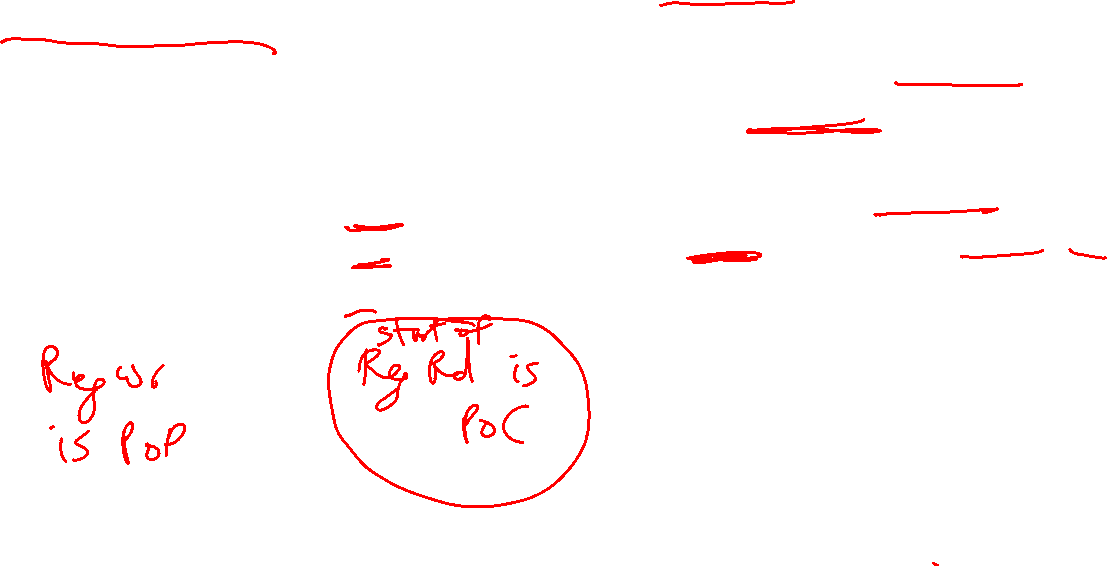 Reg Wr
is PoP
start of
Reg Rd is
PoC